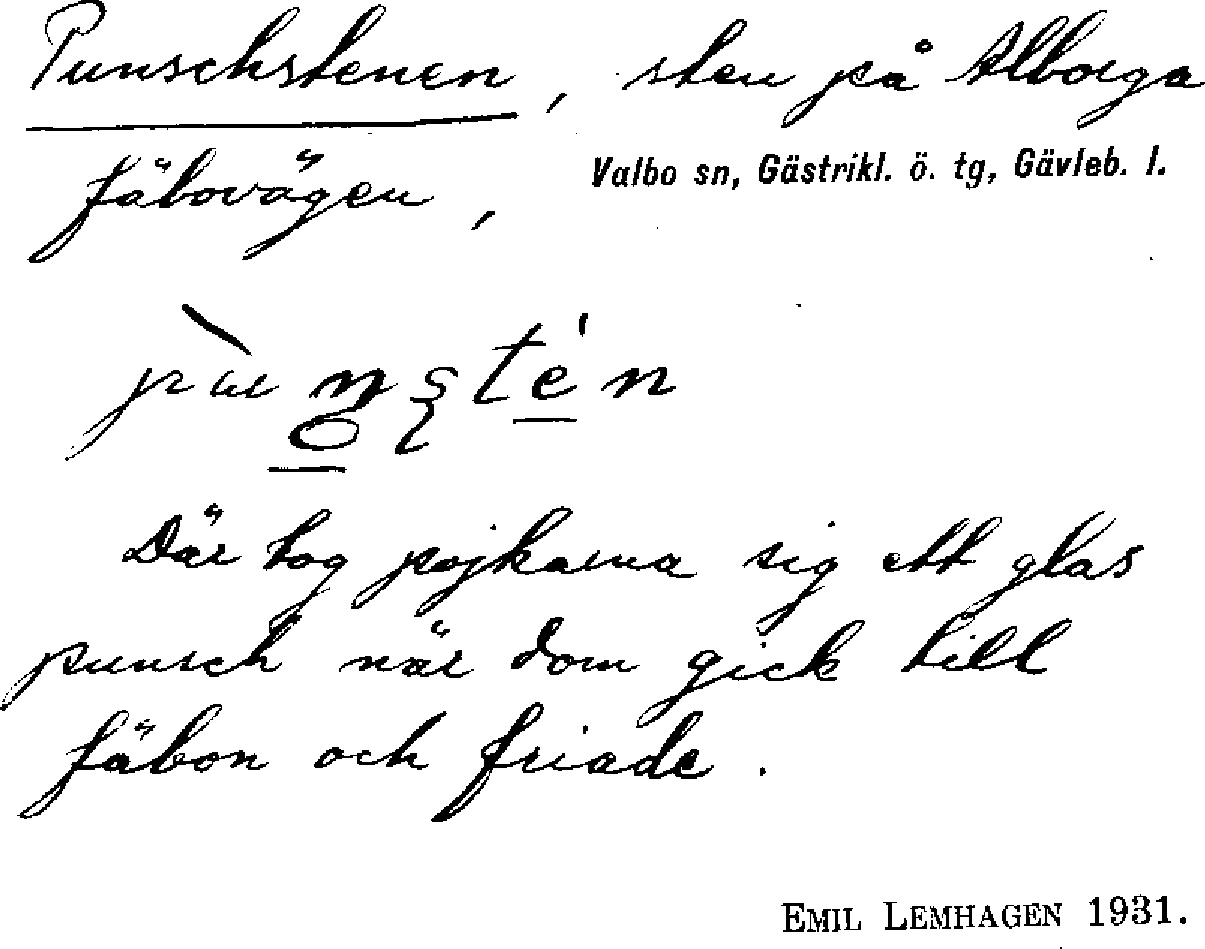 Punschstenen, sten på Alborga
fäbovägen,
Valbo sn, Gästrikl. ö. tg, Gävleb. l.
Där tog pojkarna sig ett glas
punsch när dom gick till
fäbon och friade.
EMIL LEMHAGEN 1931.